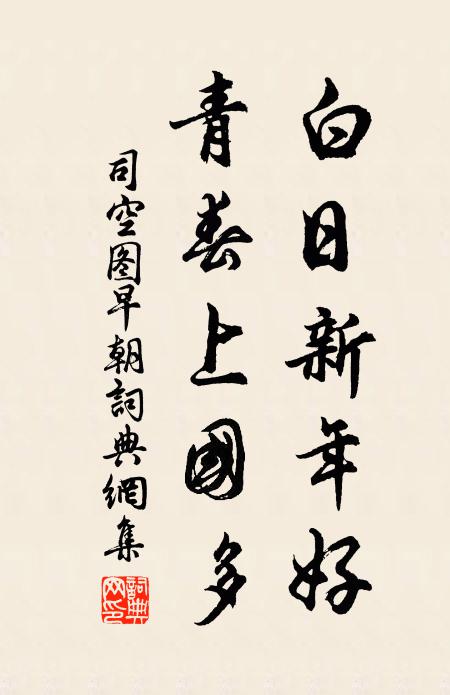 白日新年好
青春上國多
司空图早朝詞典網集
詞典网印